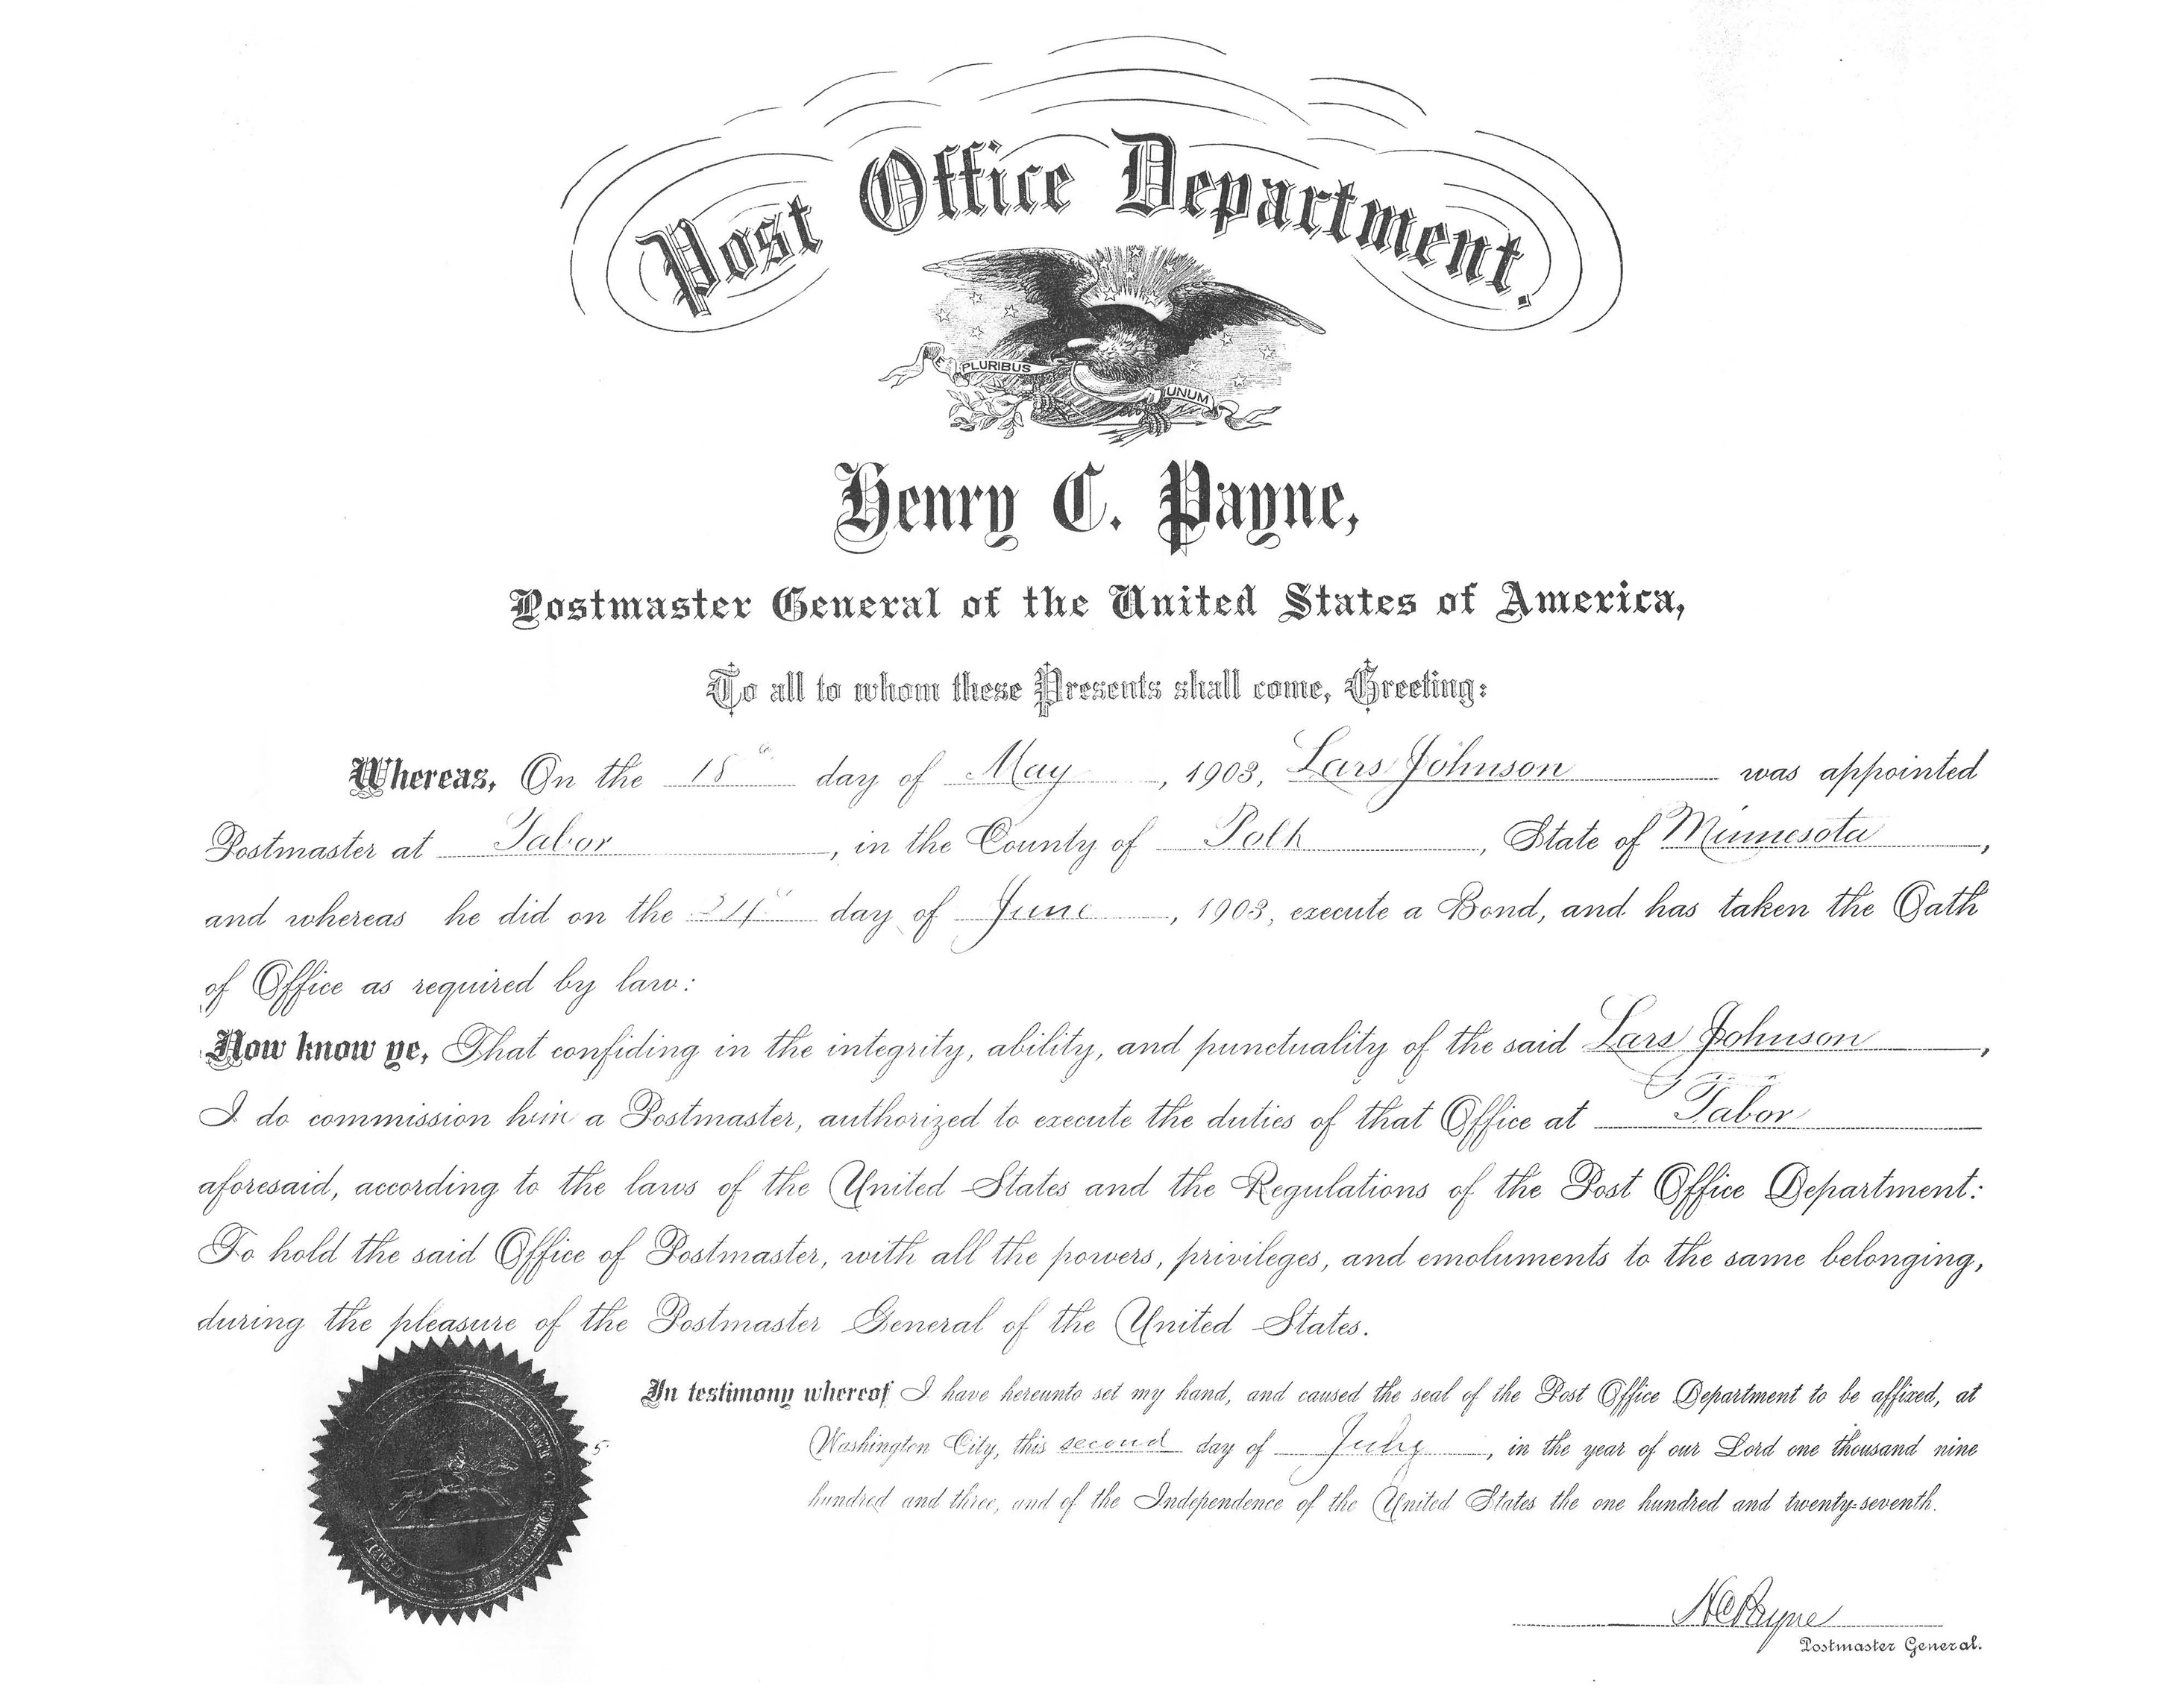 Post Office Department.
E PLURIBUS UNUM
Henry C. Payne,
Postmaster General of the United States of America,
To all to whom these Presents shall come, Greeting:
Whereas, On the 18th day of May, 1903, Lars Johnson was appointed
Postmaster at Tabor, in the County of Polk, State of Minnesota,
and whereas he did on the day of June, 1903, execute a Bond, and has taken the Oath
of Office as required by law:
Now know ye, That confiding in the integrity, ability, and punctuality of the said Lars Johnson,
I do commission him a Postmaster, authorized to execute the duties of that Office at Tabor
aforesaid, according to the laws of the United States and the Regulations of the Post Office Department:
To hold the said Office of Postmaster, with all the powers, privileges, and emoluments to the same belonging,
during the pleasure of the Postmaster General of the United States.
In testimony whereof I have hereunto set my hand, and caused the seal of the Post Office Department to be affixed, at
Washington City, this second day of July, in the year of our Lord one thousand nine
hundred and three, and of the Independence of the United States the one hundred and twenty-seventh.
H C Payne
Postmaster General.